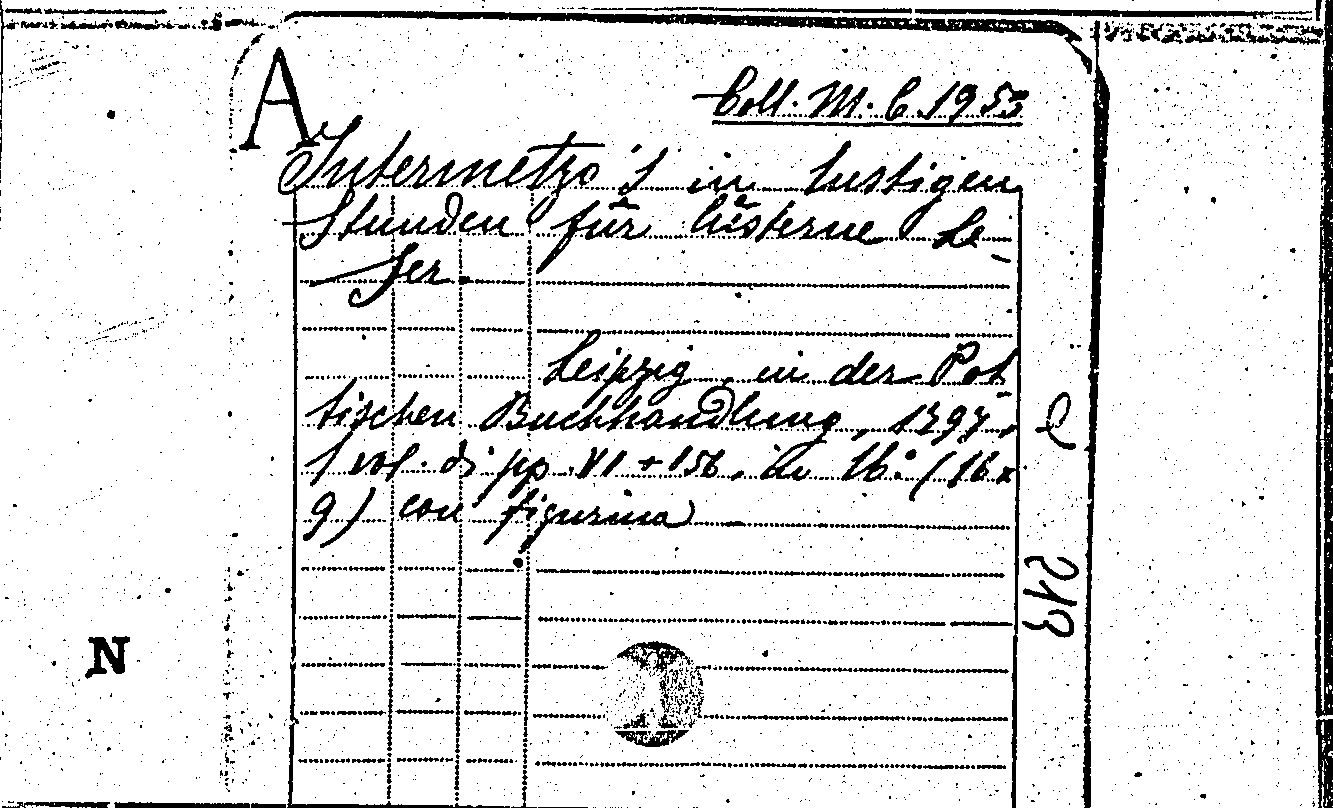 A
Coll. M. C. 1953
Intermetzo's in lustigen
Stunden für lüsterne Le-
ser.
Leipzig, in der Pot-
tischen Buchhandlung, 1797,
1 vol. di pp. VI + 156, in 16.° (16 x
9) con figurina
213
N